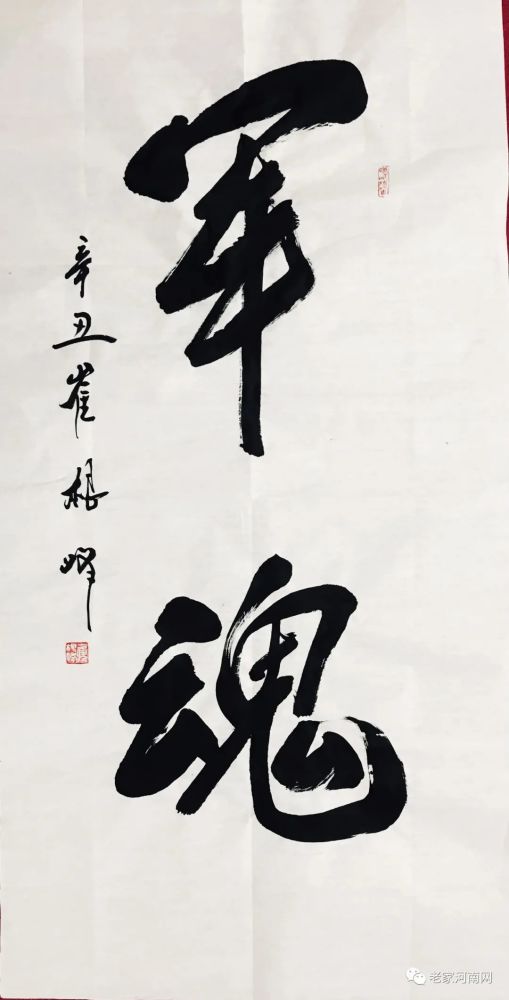 軍魂
辛丑崔根峰
老家河南网